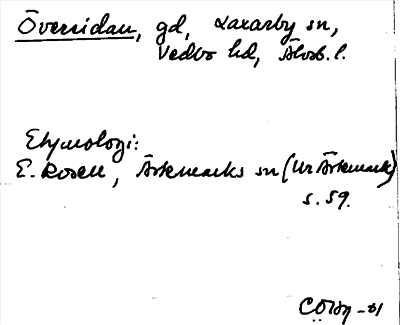 Översidan, gd, Laxarby sn,
Vedbo hd, Älvsb. l.
Etymologi:
E. Rosell, Ärtemarks sn (Ur Ärtemark)
s. 59.